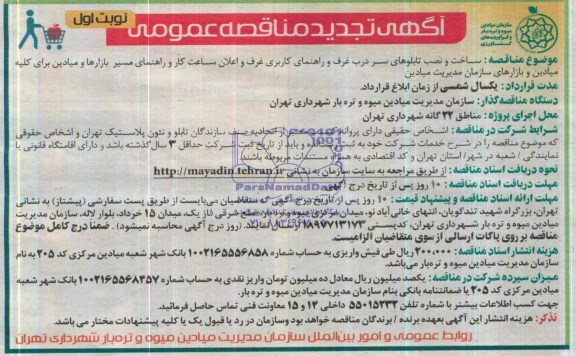 نوبت اول
آگهی تجدید مناقصه عمومی
سازمان میادین
میوه و تره بار
و فرآورده‌های
کشاورزی
موضوع مناقصه: ساخت و نصب تابلوهای سر درب غرف و راهنمای کاربری غرف و اعلان ساعت کار و راهنمای مسیر بازارها و میادین برای کلیه
میادین و بازارهای سازمان مدیریت میادین
مدت قرارداد: یکسال شمسی از زمان ابلاغ قرارداد.
دستگاه مناقصه‌گذار: سازمان مدیریت میادین میوه و تره بار شهرداری تهران
محل اجرای پروژه: مناطق ۲۲ گانه شهرداری تهران
شرایط شرکت در مناقصه: اشخاص حقیقی دارای پروانه از اتحادیه صنف سازندگان تابلو و نئون پلاستیک تهران و اشخاص حقوقی
که موضوع مناقصه را در شرح خدمات شرکت خود به ثبت و باید از تاریخ ثبت شرکت حداقل ۳ سال گذشته باشد و دارای اقامتگاه قانونی با
نمایندگی / شعبه در شهر/ استان تهران و کد اقتصادی به همراه مستندات مربوطه باشند
نحوه دریافت اسناد مناقصه: از طریق مراجعه به سایت سازمان به نشانی http://mayadin.tehran.ir
مهلت دریافت اسناد مناقصه: ۱۰ روز پس از تاریخ درج آگهی
مهلت ارائه اسناد مناقصه و پیشنهاد قیمت: ۱۰ روز پس از تاریخ درج آگهی که متقاضیان می‌بایست از طریق پست سفارشی (پیشتاز) به نشانی
تهران، بزرگراه شهید تندگویان، انتهای خانی آباد نو، میدان مرکزی میوه و تره بار، ضلع شرقی فاز یک، میدان ۱۵ خرداد، بلوار لاله، سازمان مدیریت
میادین و تره بار شهرداری تهران، کدپستی ۱۸۹۷۷۱۳۱۷۳ ارسال نمایند. (روز درج آگهی محاسبه نمیشود). ضمنا درج کامل موضوع
مناقصه بر روی پاکات ارسالی از سوی متقاضیان الزامیست.
هزینه انتشار اسناد مناقصه: ۲۰۰۰۰۰۰ ریال طی فیش واریزی به حساب شماره ۱۰۰۲۱۶۵۵۵۶۸۵۸ بانک شهر شعبه میادین مرکزی کد ۲۰۵ به نام
سازمان مدیریت میادین میوه و تره‌بار می‌باشد.
میزان سپرده شرکت در مناقصه: یکصد میلیون ریال معادل ده میلیون تومان واریز نقدی به حساب شماره ۱۰۰۲۱۶۵۵۶۸۴۵۷ بانک شهر شعبه
میادین مرکزی کد ۲۰۵ یا ضمانتنامه بانکی بنام سازمان مدیریت میادین میوه و تره بار.
جهت کسب اطلاعات بیشتر با شماره تلفن ۵۵۰۱۵۲۳۲ داخلی ۱۴ و ۱۵ معاونت فنی تماس حاصل فرمائید.
تذکر: هزینه انتشار این آگهی بعهده برنده / برندگان مناقصه خواهد بود وسازمان در رد یا قبول یک یا کلیه پیشنهادات مختار می باشد.
روابط عمومی و امور بین‌الملل سازمان مدیریت میادین میوه و تره‌بار شهرداری تهران